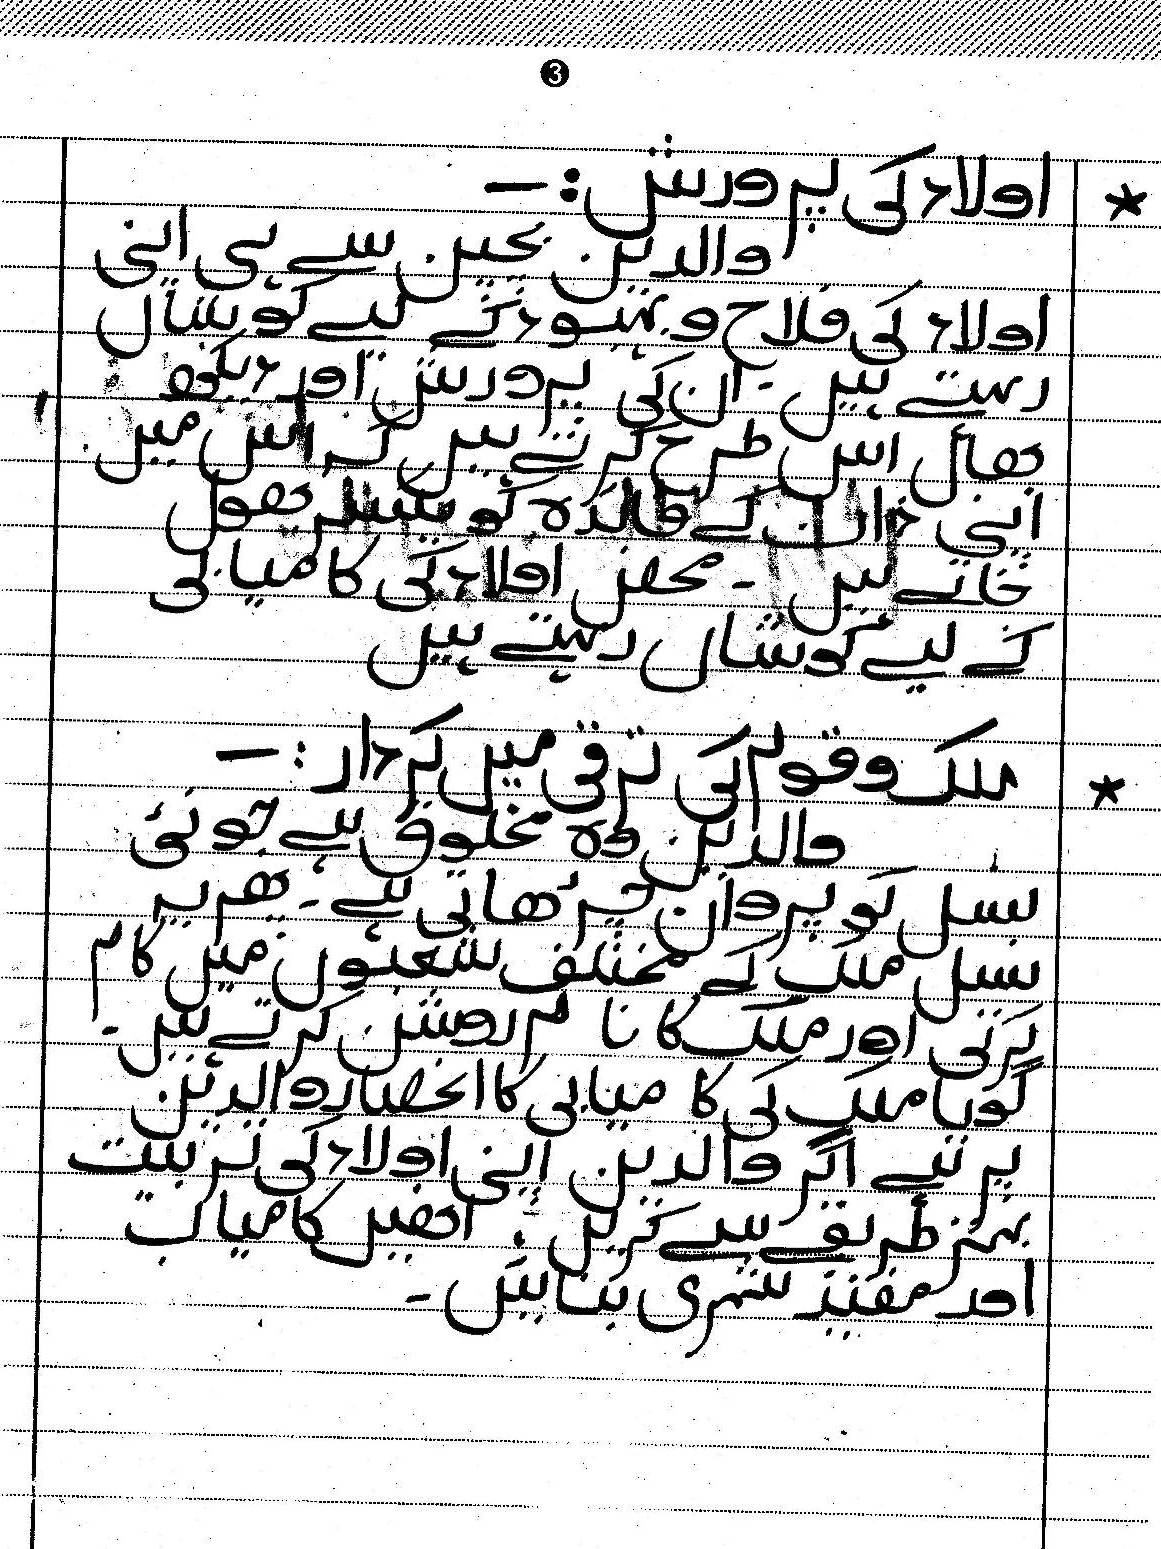 3
* اولاد کی پرورش :-
والدین بچپن سے ہی اپنی
اولاد کی فلاح و بہبود کے لیے کوشاں
رہتے ہیں - ان کی پرورش اور دیکھ
بھال اس طرح کرتے ہیں کہ اس میں
اپنی ذات کے فائدہ کو یکسر بھول
جاتے ہیں - محض اولاد کی کامیابی
کے لیے کوشاں رہتے ہیں
* ملک و قوم کی ترقی میں کردار :-
والدین وہ مخلوق ہے جو نئی
نسل کو پروان چڑھاتی ہے - پھر یہ
نسل ملک کے مختلف شعبوں میں کام
کرتی اور ملک کا نام روشن کرتے ہیں -
گویا ملک کی کامیابی کا انحصار والدین
پر ہے اگر والدین اپنی اولاد کی تربیت
بہتر طریقے سے کریں انھیں کامیاب
اور مفید شہری بنائیں -